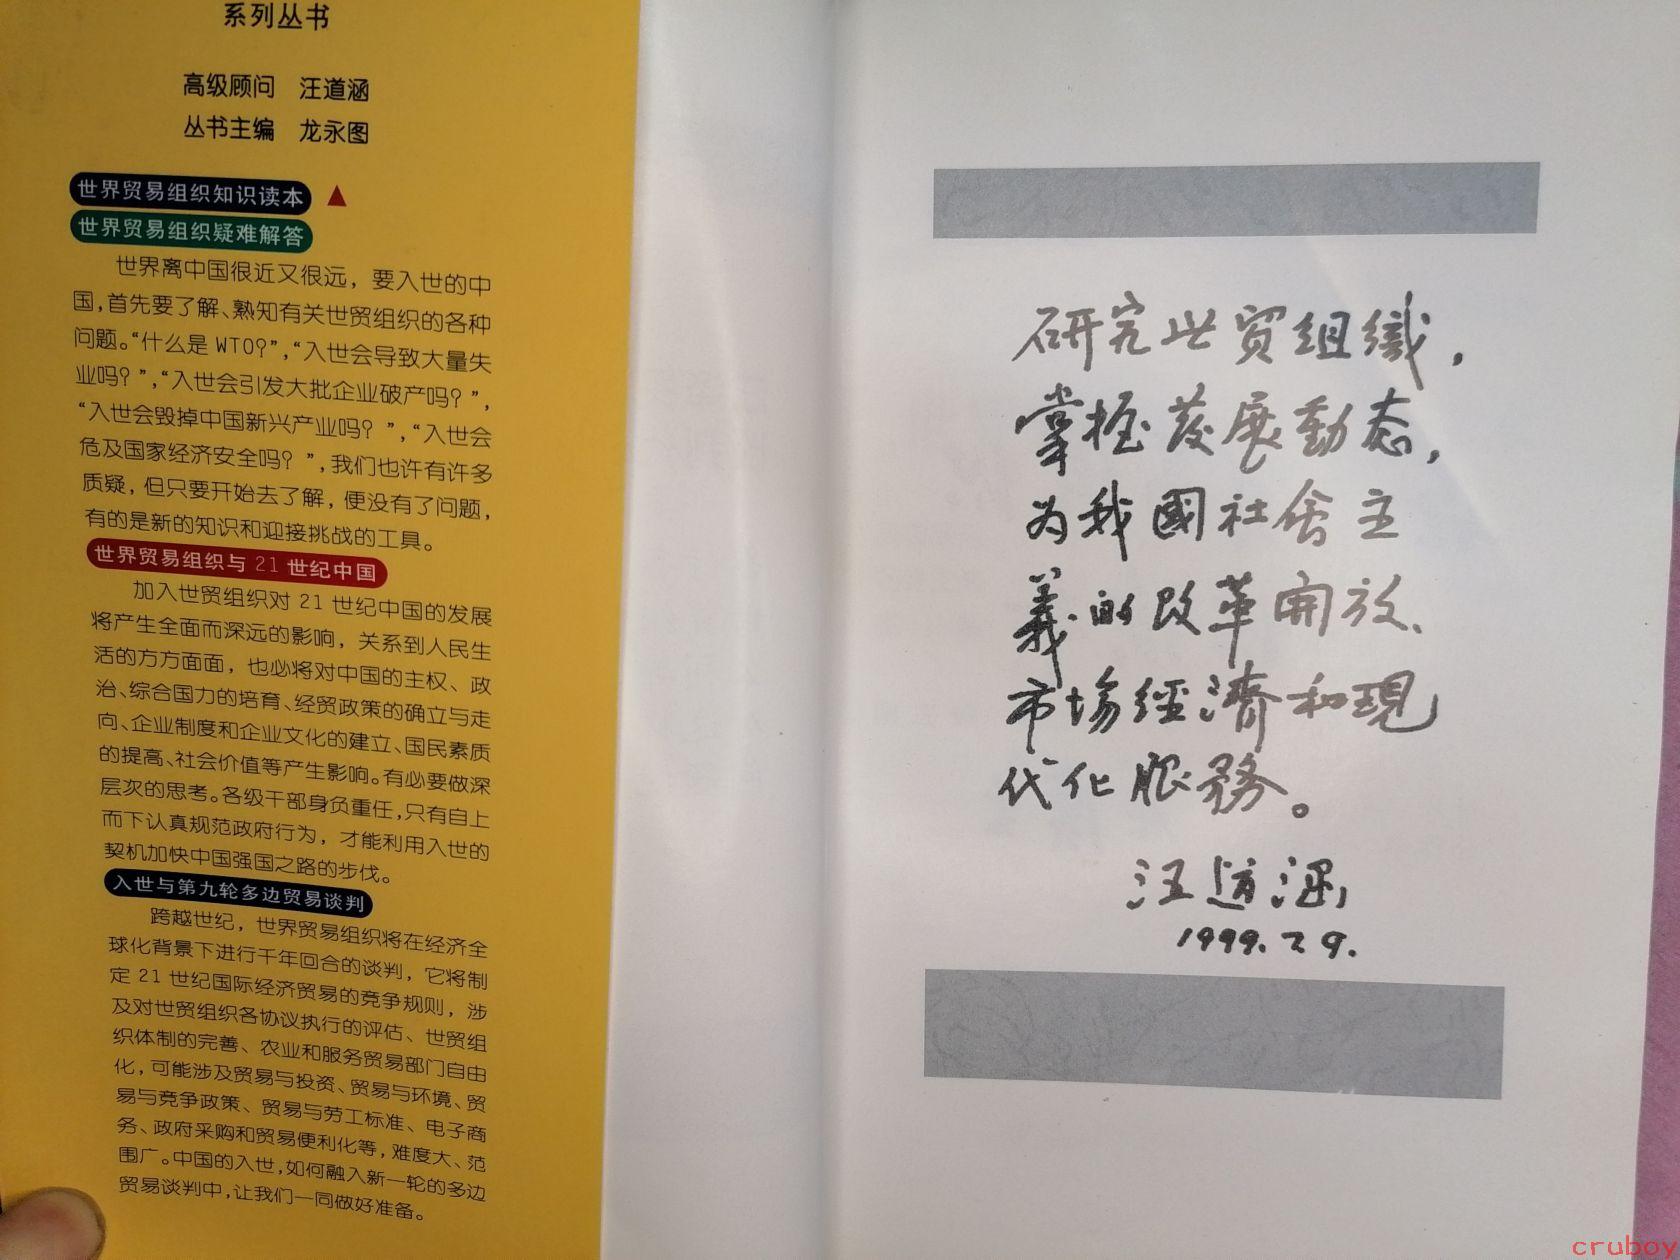 系列丛书
高级顾问 汪道涵
丛书主编 龙永图
世界贸易组织知识读本 ▲
世界贸易组织疑难解答
世界离中国很近又很远，要入世的中
国，首先要了解、熟知有关世贸组织的各种
问题。“什么是WTO？”，“入世会导致大量失
业吗？”，“入世会引发大批企业破产吗？”，
“入世会毁掉中国新兴产业吗？”，“入世会
危及国家经济安全吗？”，我们也许有许多
质疑，但只要开始去了解，便没有了问题，
有的是新的知识和迎接挑战的工具。
世界贸易组织与21世纪中国
加入世贸组织对21世纪中国的发展
将产生全面而深远的影响，关系到人民生
活的方方面面，也必将对中国的主权、政
治、综合国力的培育、经贸政策的确立与走
向、企业制度和企业文化的建立、国民素质
的提高、社会价值等产生影响。有必要做深
层次的思考。各级干部身负重任，只有自上
而下认真规范政府行为，才能利用入世的
契机加快中国强国之路的步伐。
入世与第九轮多边贸易谈判
跨越世纪，世界贸易组织将在经济全
球化背景下进行千年回合的谈判，它将制
定21世纪国际经济贸易的竞争规则，涉
及对世贸组织各协议执行的评估、世贸组
织体制的完善、农业和服务贸易部门自由
化，可能涉及贸易与投资、贸易与环境、贸
易与竞争政策、贸易与劳工标准、电子商
务、政府采购和贸易便利化等，难度大、范
围广。中国的入世，如何融入新一轮的多边
贸易谈判中，让我们一同做好准备。
研究世贸组織，
掌握发展動态，
为我國社会主
義的改革開放、
市场經濟和現
代化服務。
汪道涵
1999.7.9.
cruboy